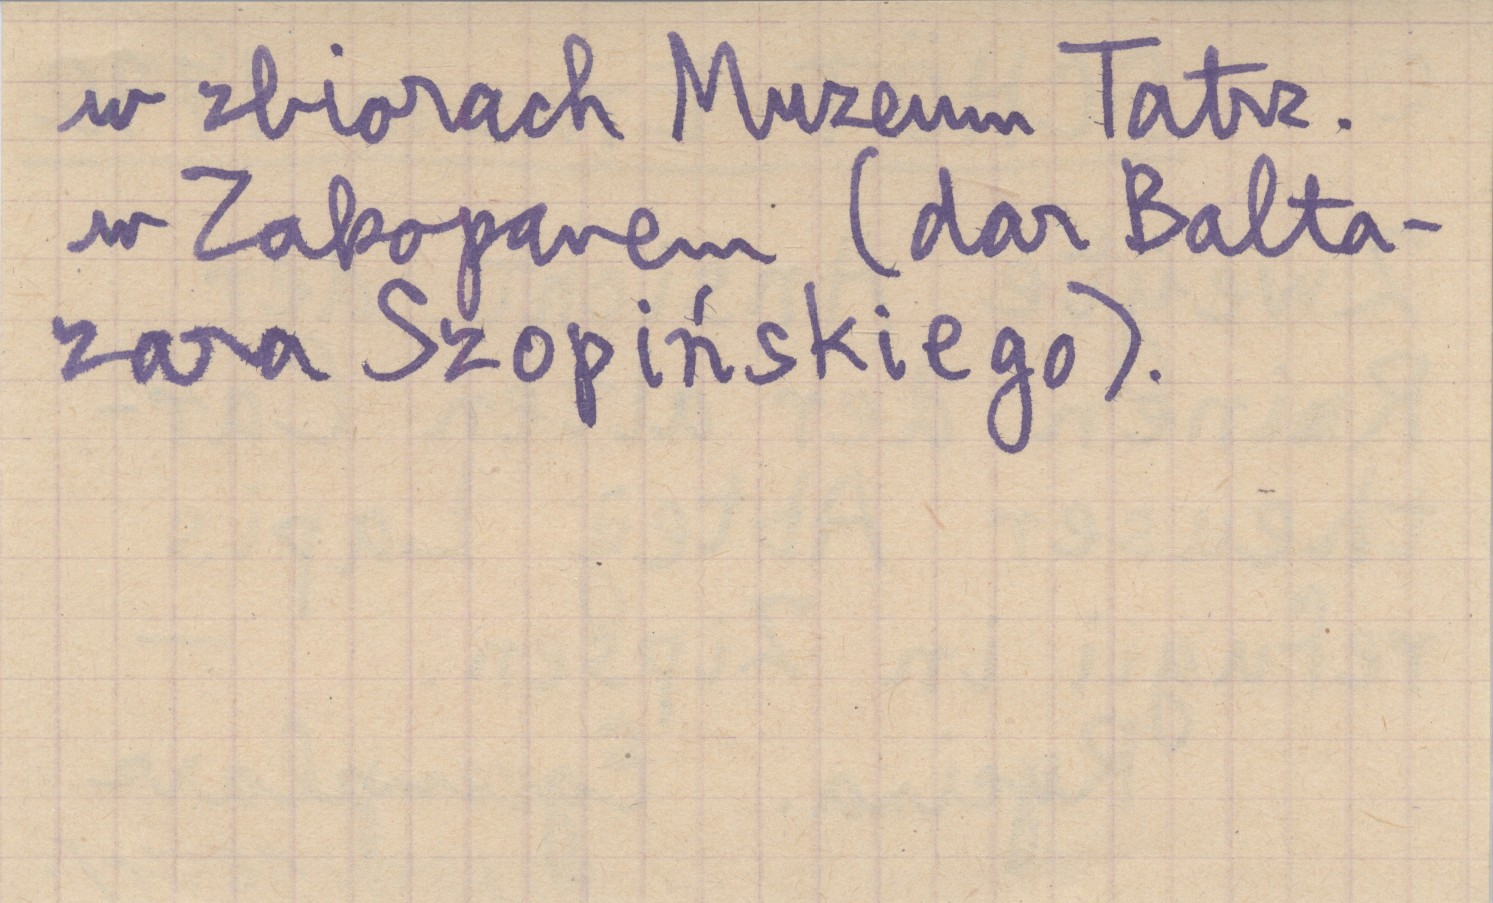 w zbiorach Muzeum Tatrz.
w Zakopanem (dar Balta-
zara Szopińskiego).